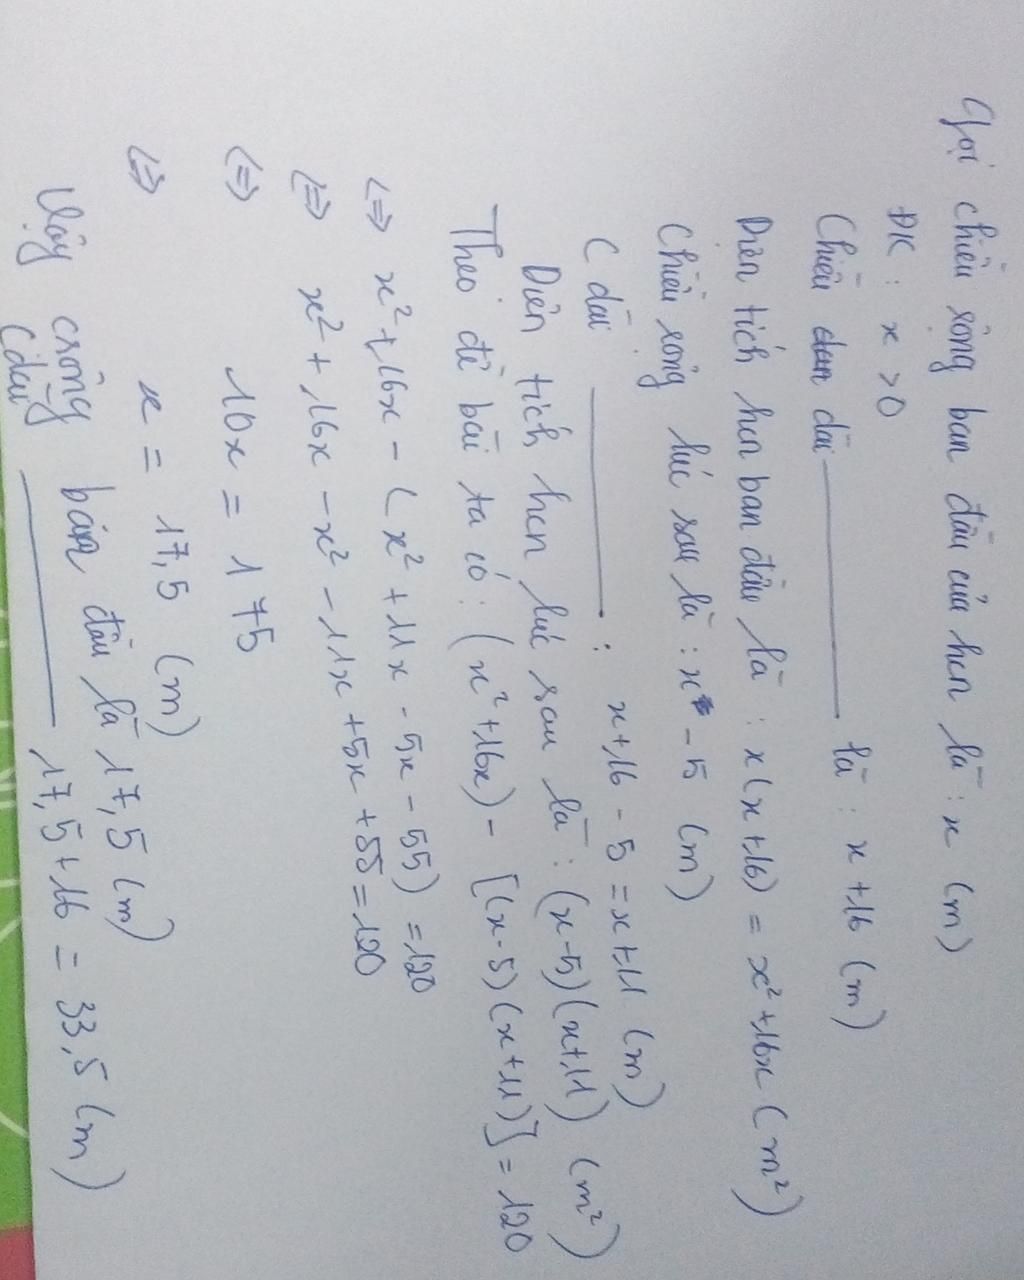 Gọi chiều rộng ban đầu của hcn là : x (m)
ĐK : x > 0
Chiều dài là : x + 16 (m)
Diện tích hcn ban đầu là : x(x+16) = x² + 16x (m²)
Chiều rộng lúc sau là : x - 5 (m)
C dài : x+16 - 5 = x+11 (m)
Diện tích hcn lúc sau là : (x-5)(x+11) (m²)
Theo đề bài ta có : (x²+16x) - [(x-5)(x+11)] = 120
⇔ x² + 16x - (x² + 11x - 5x - 55) = 120
⇔ x² + 16x - x² - 11x + 5x + 55 = 120
⇔ 10x = 175
⇔ x = 17,5 (m)
Vậy crộng ban đầu là 17,5 (m)
Cdài 17,5 + 16 = 33,5 (m)